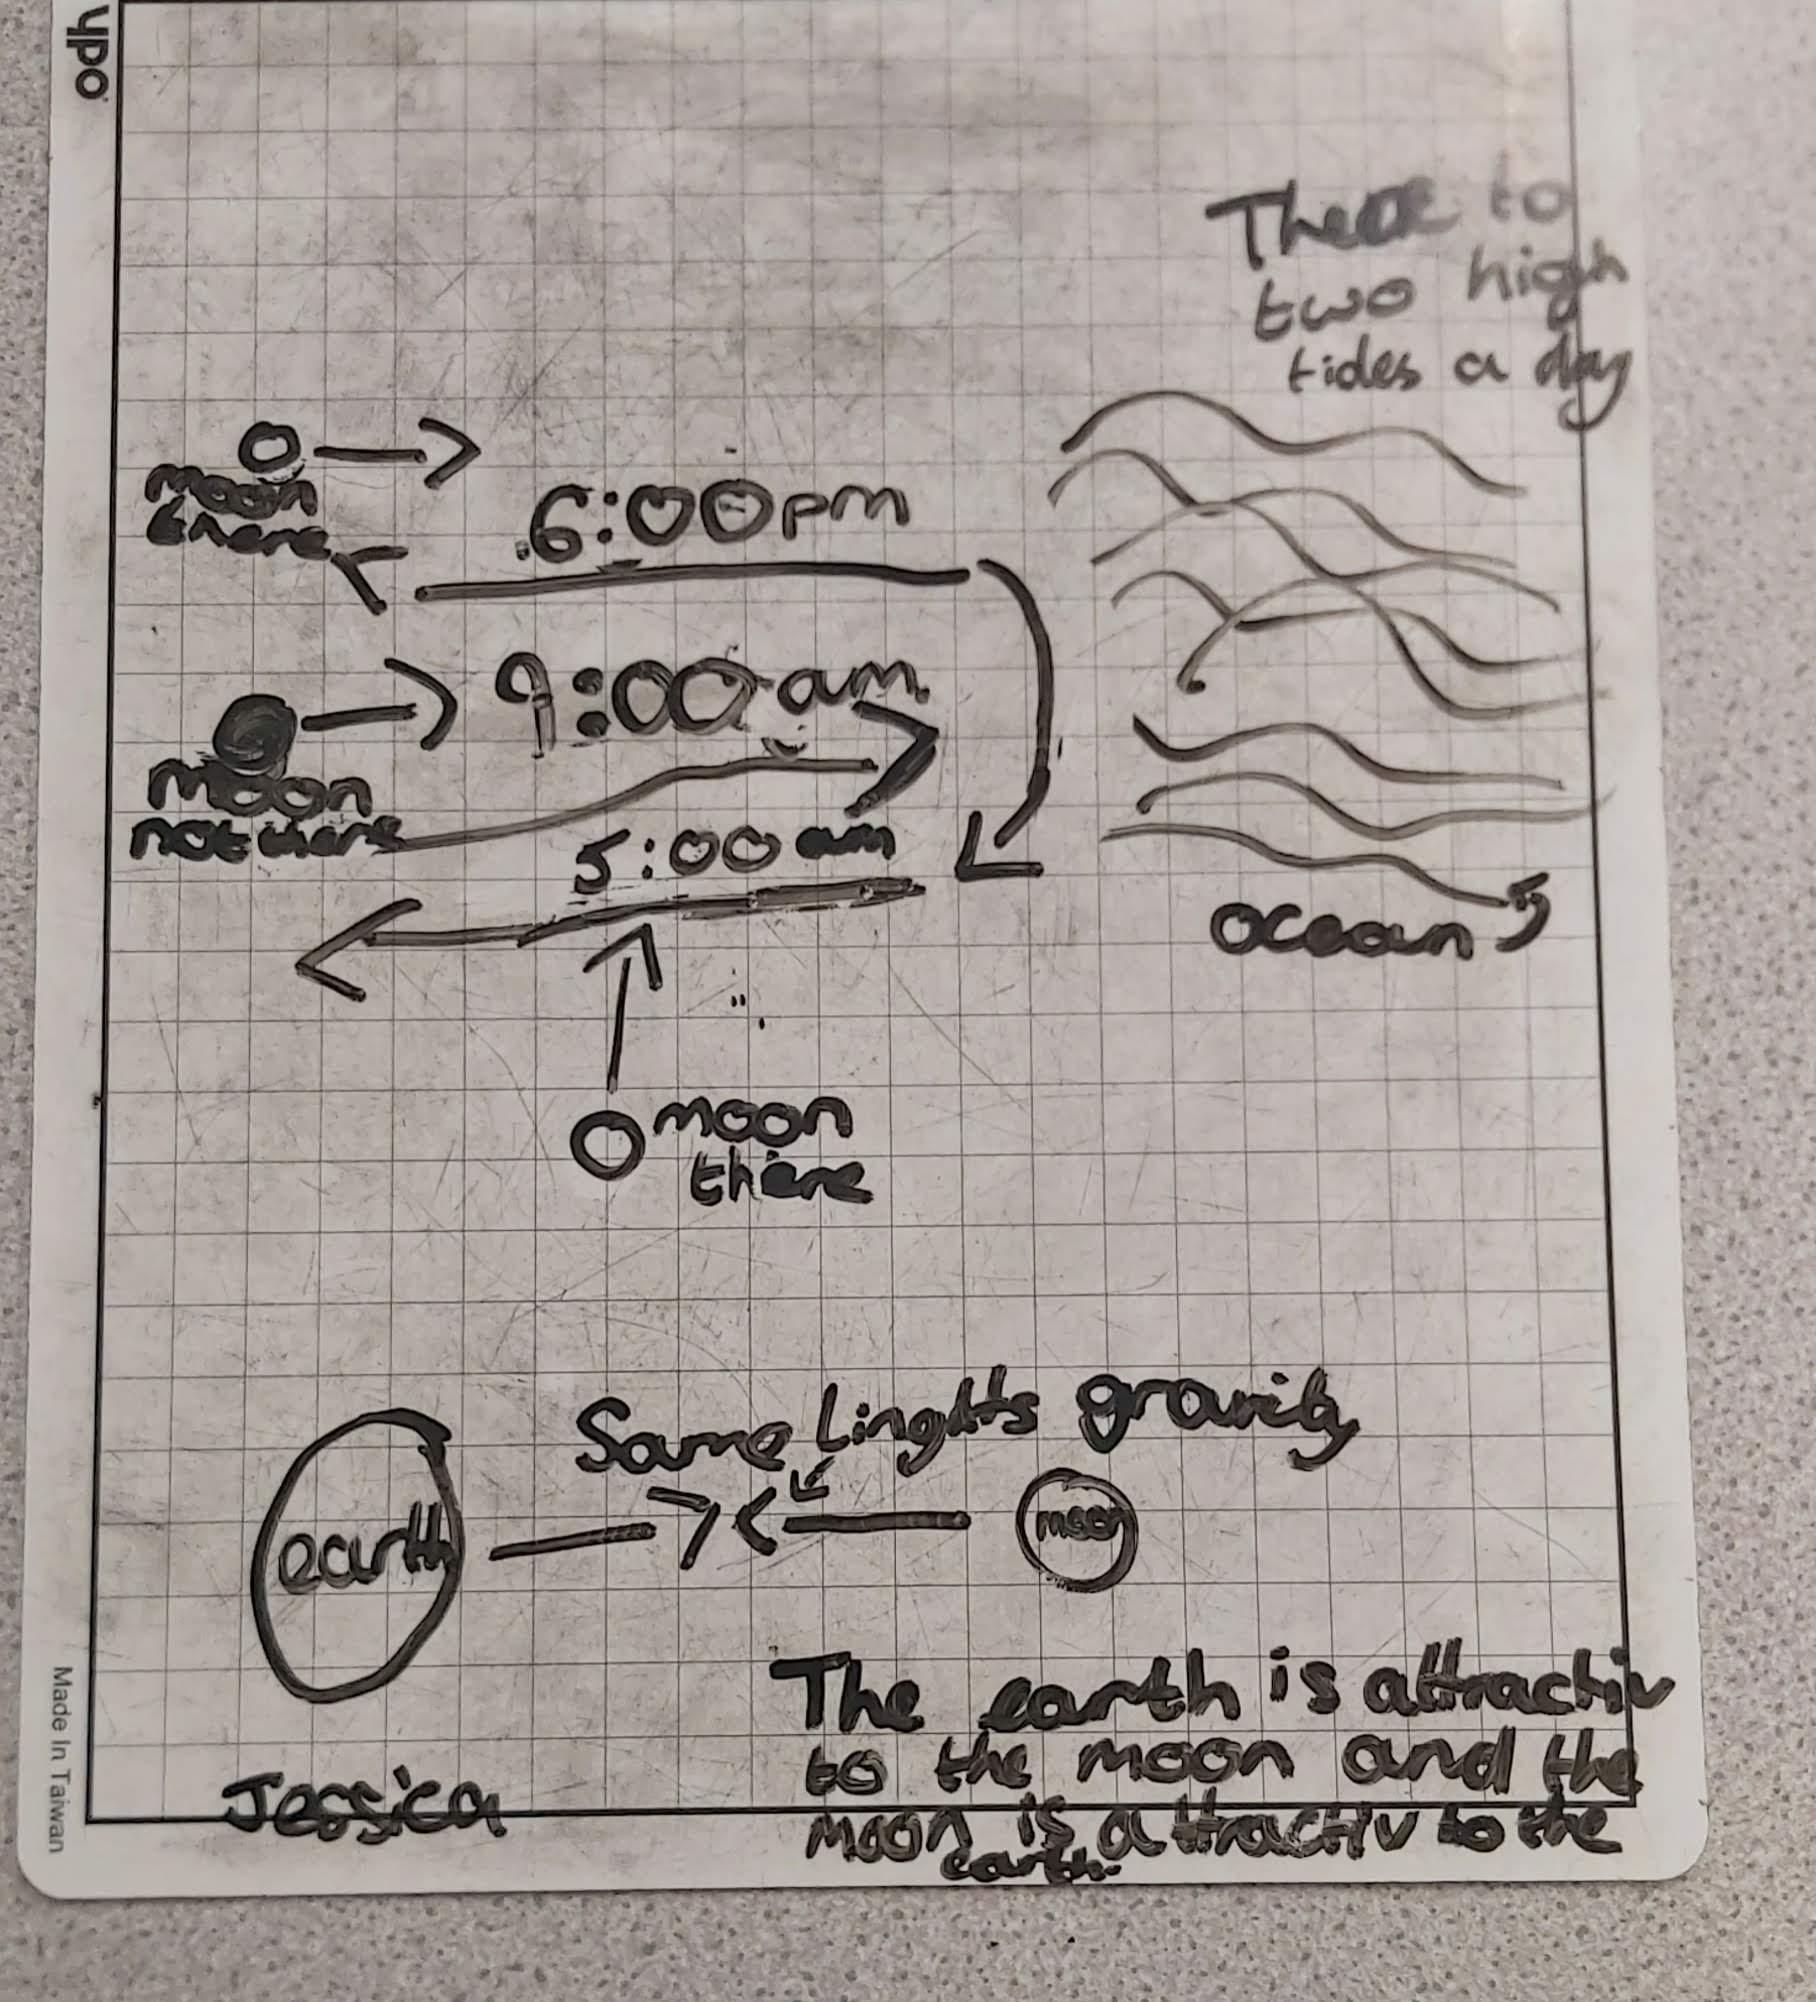 ypo
There to
two high
tides a day
moon
there
6:00pm
9:00 am
moon
not there
5:00 am
ocean
moon
there
Same Linghts gravity
earth
moon
The earth is attractiv
to the moon and the
moon is attractiv to the
earth.
Jessica
Made In Taiwan